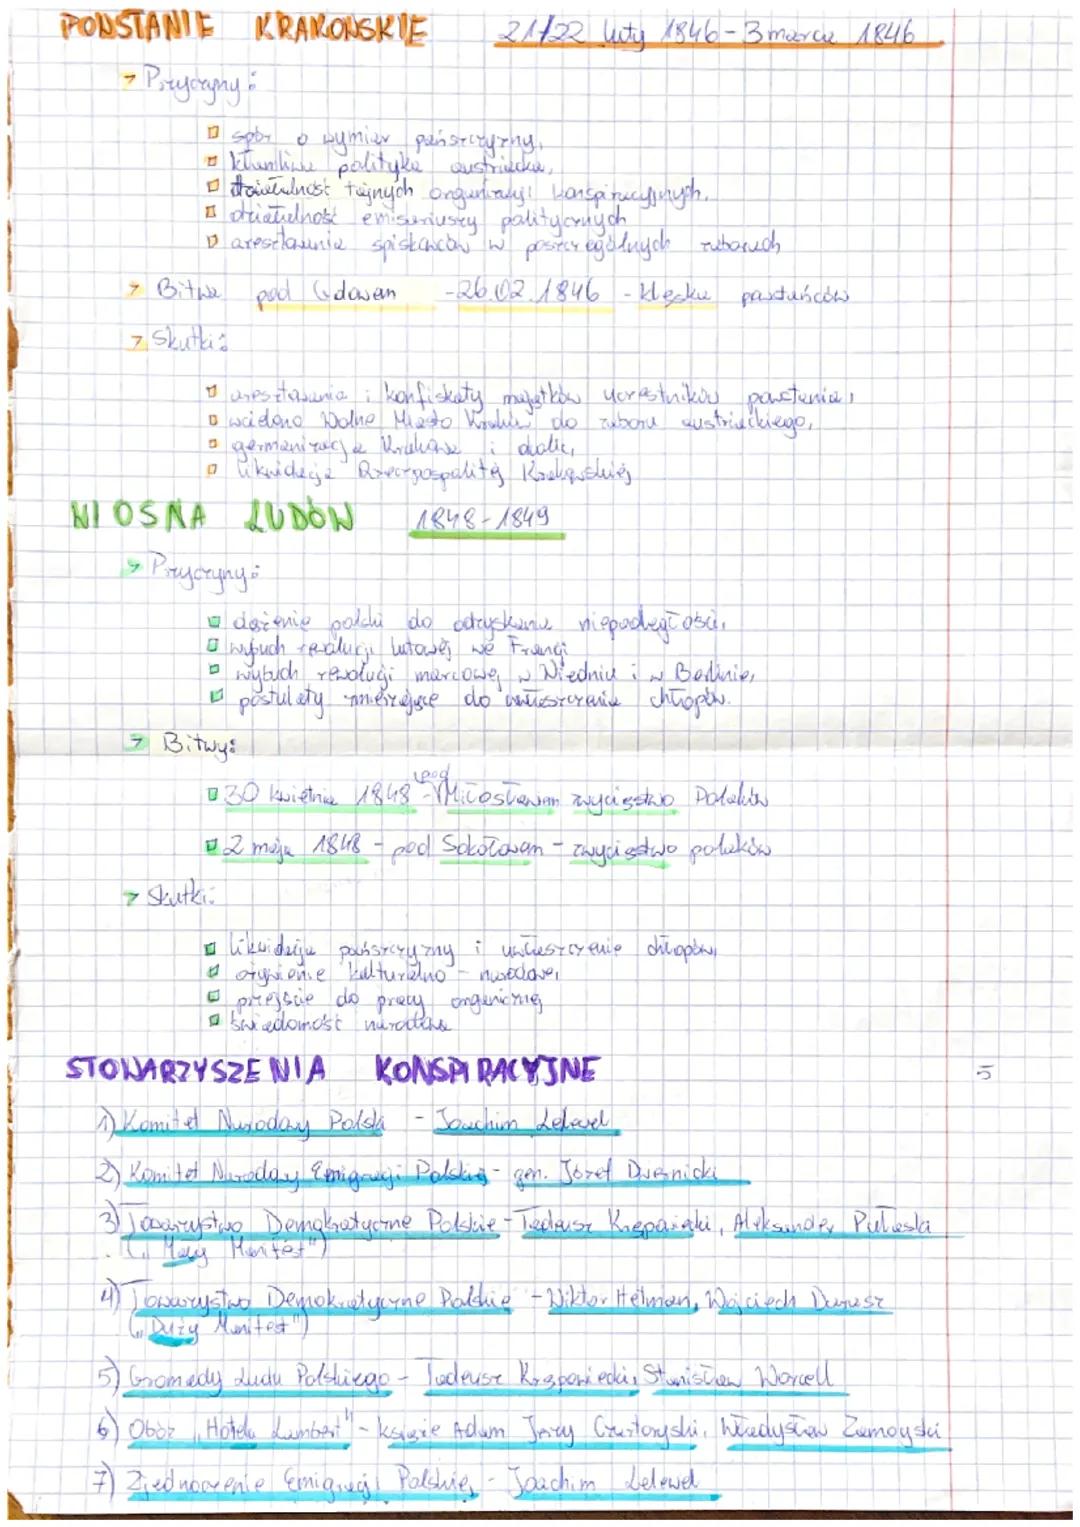 POWSTANIE KRAKOWSKIE 21/22 luty 1846 - 3 marca 1846
→ Przyczyny:
spór o wymiar pańszczyzny,
kłamliwa polityka austriacka,
działalność tajnych organizacji konspiracyjnych,
działalność emisariuszy politycznych
aresztowania spiskowców w poszczególnych zaborach
→ Bitwa pod Gdowem - 26.02.1846 - klęska powstańców
→ Skutki:
aresztowania i konfiskaty majątków uczestników powstania,
wcielono Wolne Miasto Kraków do zaboru austriackiego,
germanizacja Krakowa i okolic,
likwidacja Rzeczpospolitej Krakowskiej
WIOSNA LUDÓW 1848-1849
→ Przyczyny:
dążenie polski do odzyskania niepodległości,
wybuch rewolucji lutowej we Francji
wybuch rewolucji marcowej w Wiedniu i w Berlinie,
postulaty zmierzające do uwłaszczenia chłopów.
→ Bitwy:
30 kwietnia 1848 - pod Miłosławiem zwycięstwo Polaków
2 maja 1848 - pod Sokołowem - zwycięstwo polaków
→ Skutki:
likwidacja pańszczyzny i uwłaszczenie chłopów,
ożywienie kulturalno - narodowe,
przejście do pracy organicznej
świadomość narodowa
STOWARZYSZENIA KONSPIRACYJNE
5
1) Komitet Narodowy Polski - Joachim Lelewel
2) Komitet Narodowy Emigracji Polskiej - gen. Józef Dwernicki
3) Towarzystwo Demokratyczne Polskie - Tadeusz Krępowiecki, Aleksander Pułaski
("Mały Manifest")
4) Towarzystwo Demokratyczne Polskie - Wiktor Helman, Wojciech Darasz
("Duży Manifest")
5) Gromady Ludu Polskiego - Tadeusz Krępowiecki, Stanisław Worcell
6) Obóz "Hotelu Lambert" - książe Adam Jerzy Czartoryski, Władysław Zamoyski
7) Zjednoczenie Emigracji Polskiej - Joachim Lelewel